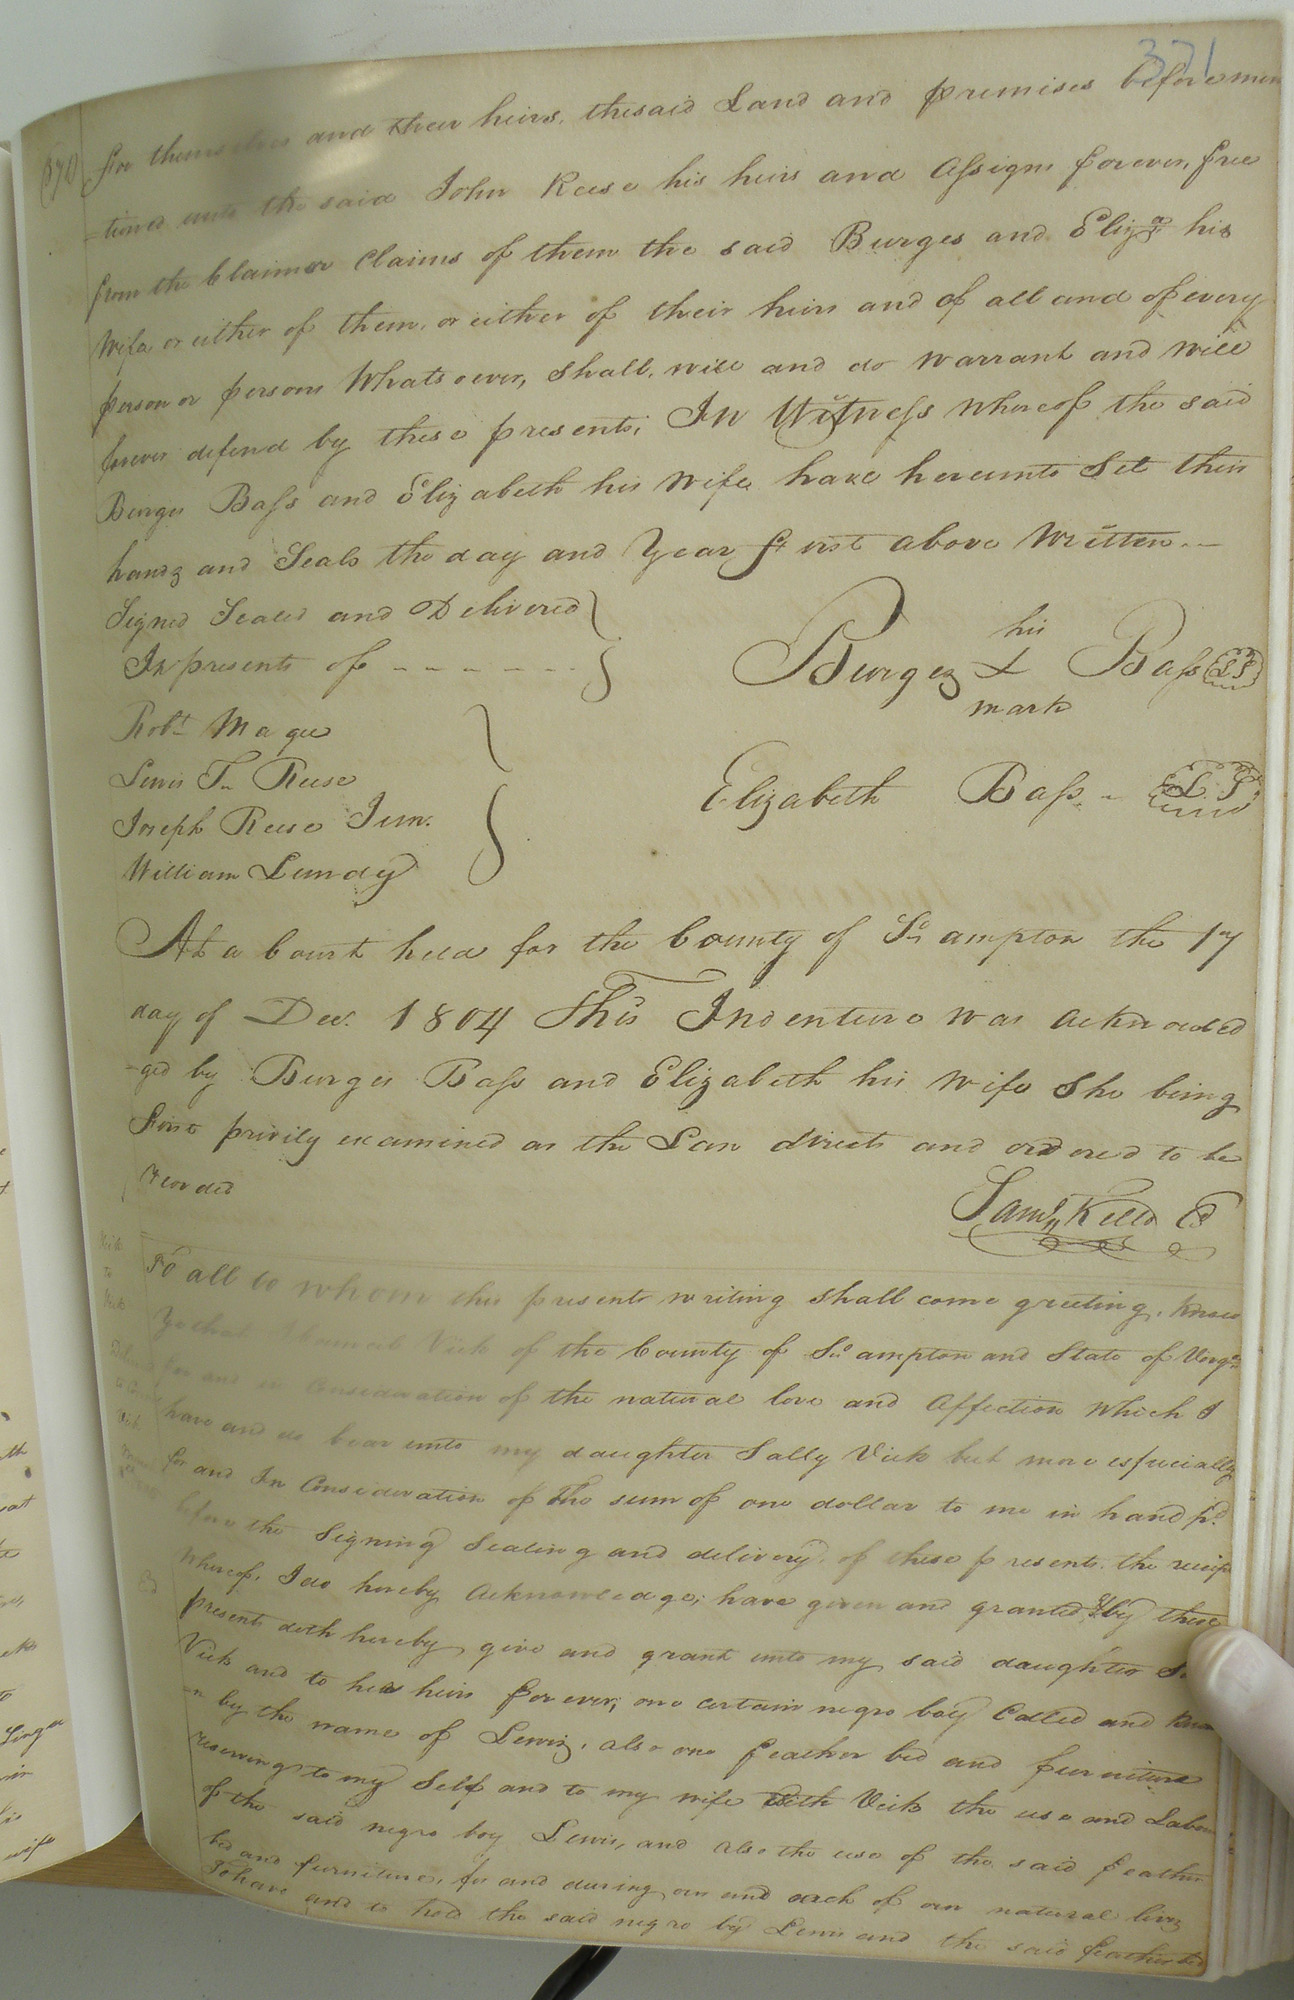 371
(371)
for themselves and their heirs, the said Land and premises before men
-tioned unto the said John Reese his heirs and assigns forever, free
from the Claim or Claims of them the said Burges and Eliza his
Wife or either of them, or either of their heirs and of all and of every
person or persons Whatsoever, shall, will and do warrant and will
forever defend by these presents; In Witness Whereof the said
Burges Bass and Elizabeth his Wife have hereunto Set their
hands and Seals the day and Year first above Written.—
Signed Sealed and Delivered
In presents of - - - - - - -
his
Burges X Bass LS
mark
Robt. Magee
Lewis Tn. Reese
Elizabeth Bass - L.S.
Joseph Reese Jun.
William Lundy
At a Court held for the County of So.ampton the 17
day of Dec. 1804 This Indenture was acknowled
-ged by Burges Bass and Elizabeth his Wife She being
first privily examined as the Law directs and ordered to be
recorded
Saml. Kello
To all to whom this presents writing shall come greeting, Know
Ye that Vick of the County of So.ampton and State of Virga.
for and in Consideration of the natural love and affection which I
have and do bear unto my daughter Sally Vick but more especially
for and In Consideration of the sum of one dollar to me in hand pd.
before the Signing Sealing and delivery of these presents, the receipt
Whereof, I do hereby acknowledge; have given and granted & by these
presents doth hereby give and grant unto my said daughter
Vick and to her heirs forever; one certain negro boy Called and
n by the name of Lewis, also one feather bed and furniture
reserving to my Self and to my wife Vick the use and Labour
of the said negro boy Lewis, and also the use of the said feather
bed and furniture, for and during our and each of our natural lives
To have and to hold the said negro boy Lewis and the said feather